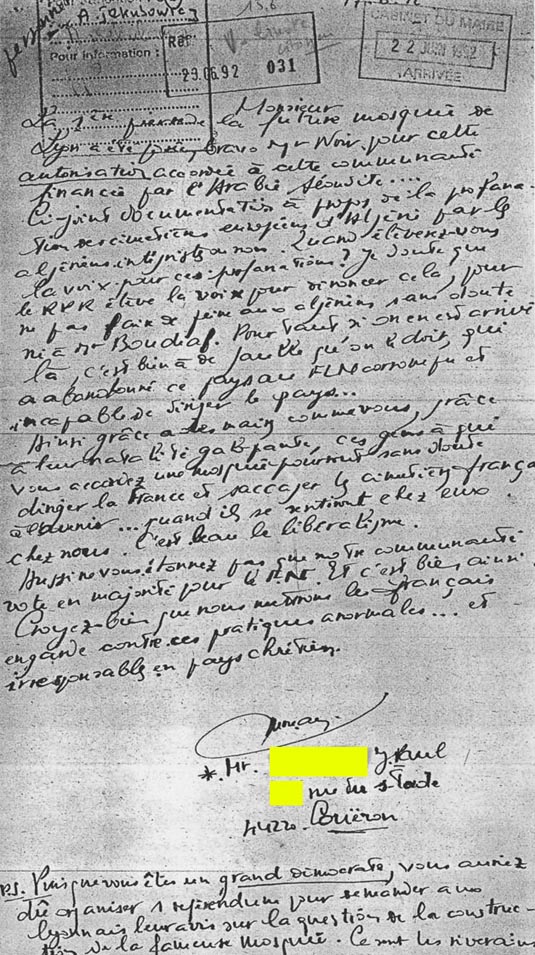 A. Jakubowicz
Pour information :
Réf.
29.06.92 031
CABINET DU MAIRE
22 JUIN 1992
ARRIVÉE
Monsieur
La 1ère de la future mosquée de
Lyon a été bravo Mr Noir pour cette
autorisation accordée à cette communauté
financée par l'Arabie Séoudite....
Ci-joint documentation à propos de la profana-
tion des cimetières européens d'Algérie par les
algériens intégristes ou non. Quand élèverez-vous
la voix pour ces profanations ? Je doute que
le RPR élève la voix pour dénoncer cela, pour
ne pas faire de peine aux algériens sans doute
ni à Mr Boudiaf. Pourtant si on en est arrivé
là, c'est bien à de Gaulle qu'on le doit, qui
a abandonné ce pays au FLN corrompu et
incapable de diriger le pays...
Ainsi grâce à des comme vous, grâce
à leur natalité galopante, ces gens à qui
vous accordez une mosquée pourront sans doute
diriger la France et saccager les cimetières français
à l'avenir... quand ils se sentiront chez eux
chez nous. C'est beau le libéralisme.
Aussi ne vous étonnez pas que notre communauté
vote en majorité pour le FN. Et c'est bien ainsi.
Croyez bien que nous mettrons les français
en garde contre ces pratiques anormales... et
irresponsables en pays chrétien.
*. Mr. Paul
rue du stade
44220. Couëron
P.S. Puisque vous êtes un grand démocrate, vous auriez
dû organiser 1 référendum pour demander aux
lyonnais leur avis sur la question de la construc-
tion de la fameuse mosquée. Ce sont les riverains